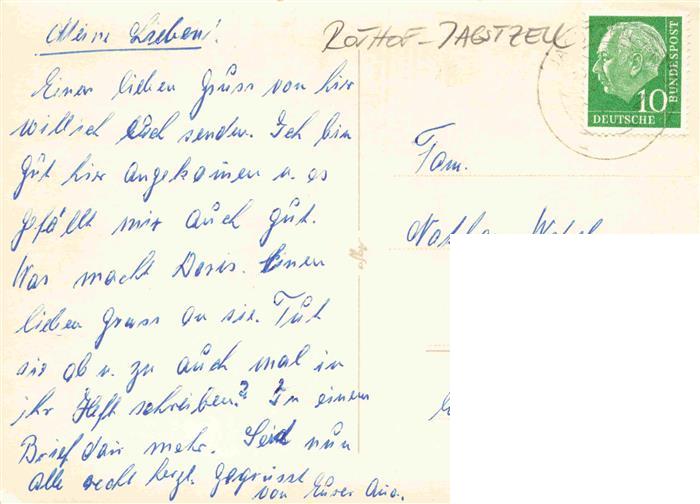 Meine Lieben!
ROTHOF - JAGSTZELL
Einen lieben Gruss von hir
will ich Euch senden. Ich bin
gut hier angekommen u. es
gefällt mir auch gut.
Was macht Doris. Einen
lieben Gruss an sie. Tut
sie ab u. zu auch mal in
ihr Heft schreiben? In einem
Brief dan mehr. Seid nun
alle recht herzl. gegrüsst
von Eurer
Fam.
10
DEUTSCHE
BUNDESPOST